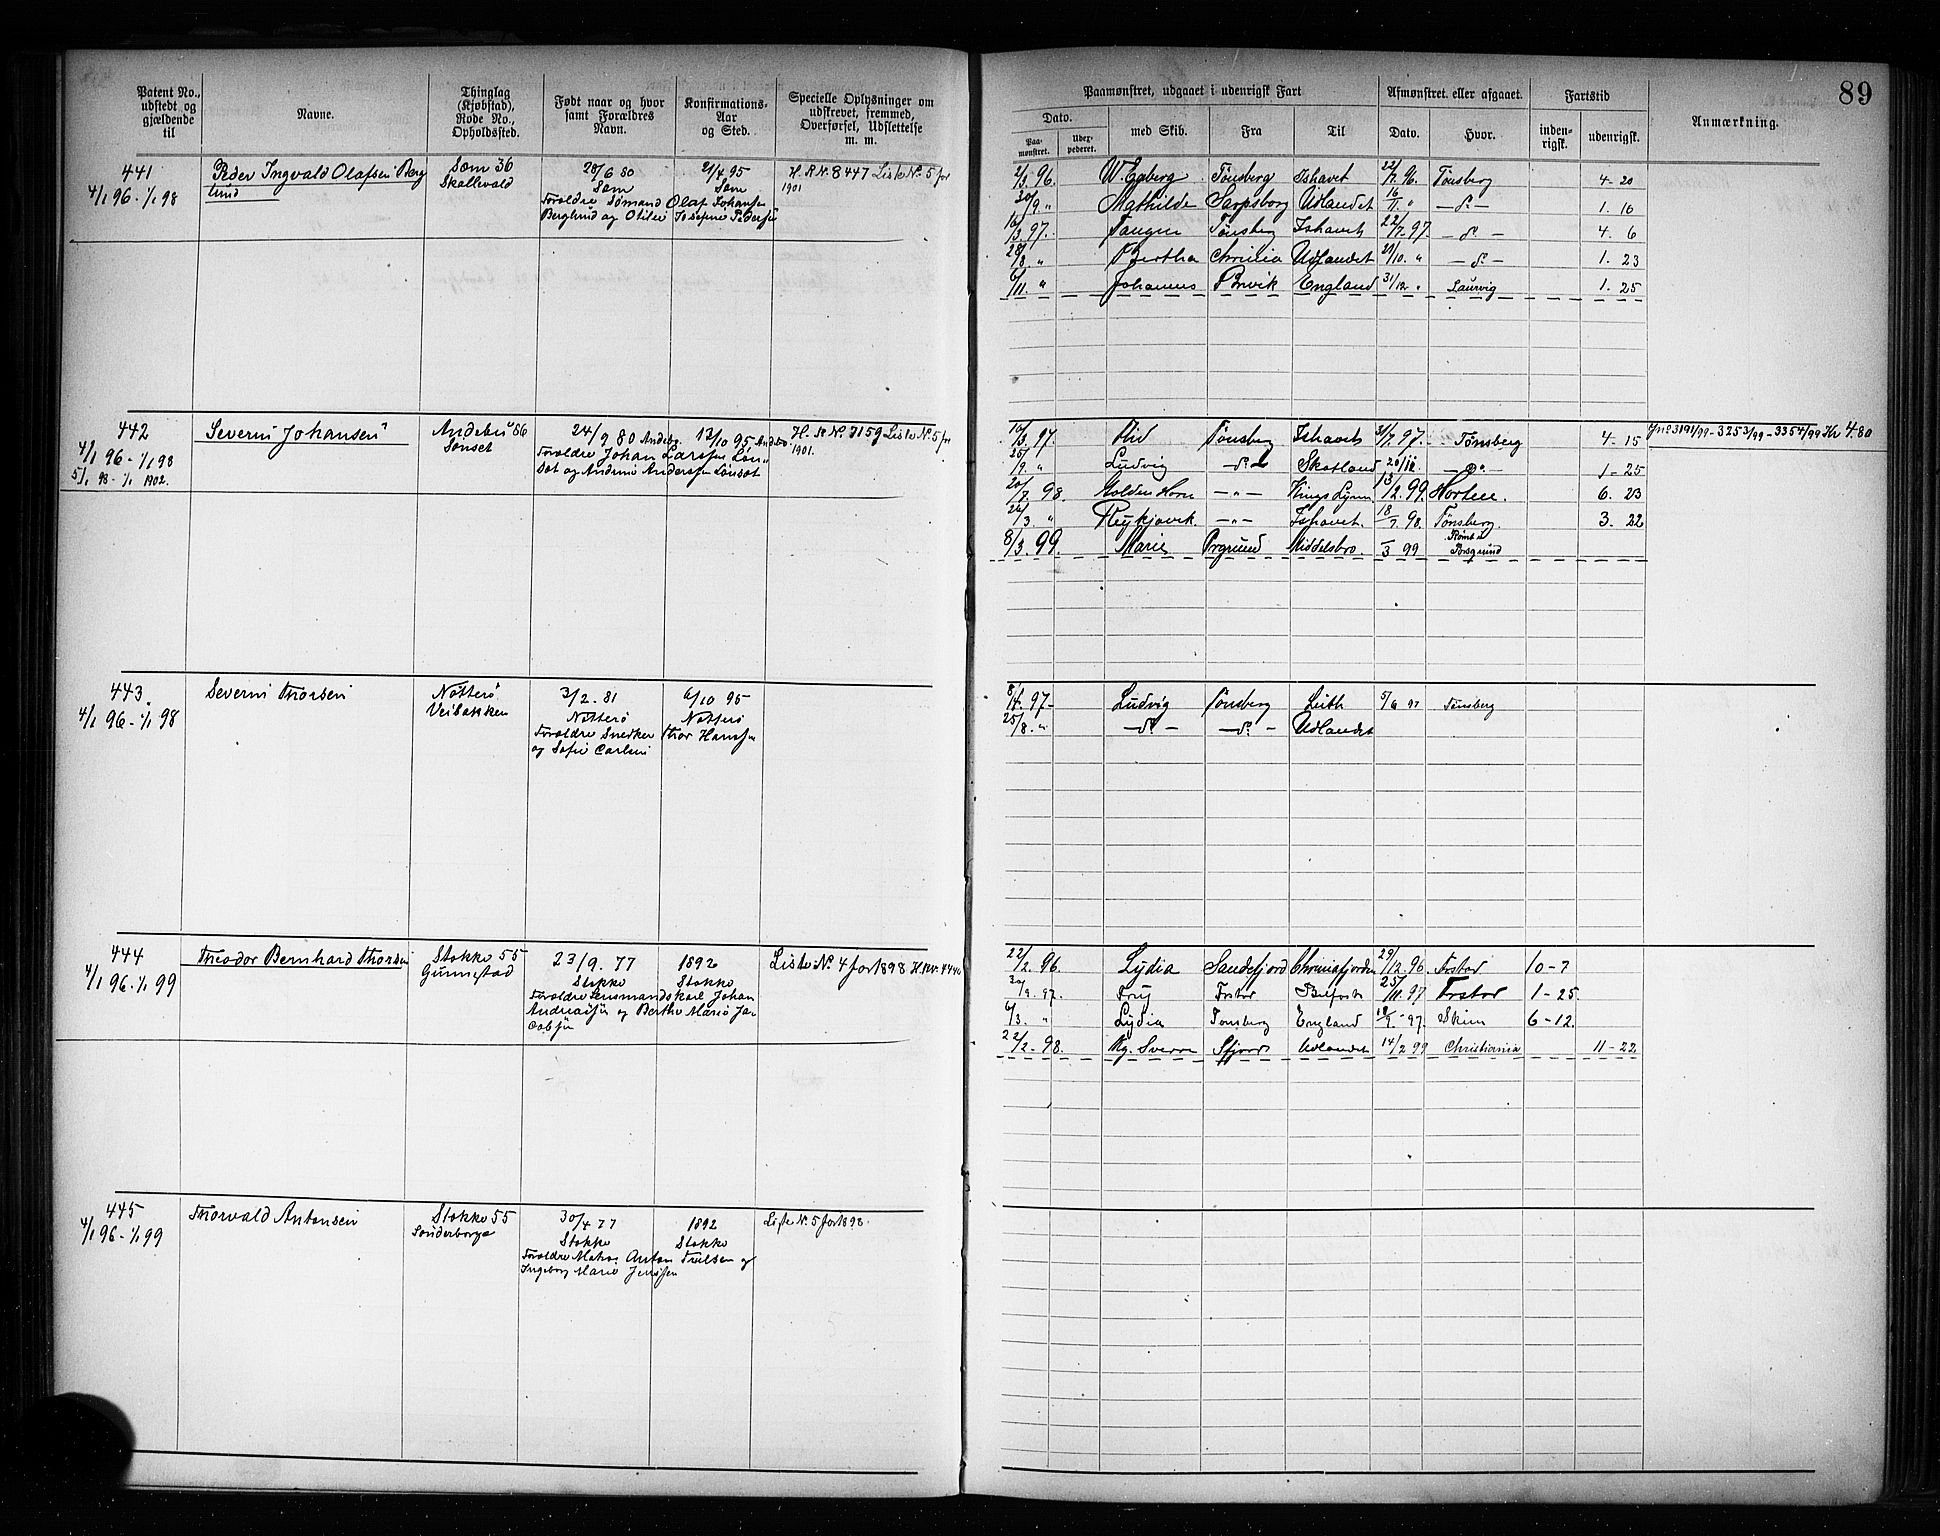 89
Patent No., udstedt og gjældende til
Navne.
Thinglag (Kjøbstad), Rode No., Opholdssted.
Født naar og hvor samt Forældres Navn.
Konfirmations-Aar og Sted.
Specielle Oplysninger om udskrevet, fremmed, Overførsel, Udslettelse m. m.
Paamønstret, udgaaet i udenrigsk Fart
Dato.
Paa-mønstret.
Uder-pederet.
med Skib.
Fra
Til
Afmønstret eller afgaaet.
Dato.
Hvor.
Fartstid
inden-rigsk.
udenrigsk.
Anmærkning.
441
4/1 96 - 1/1 98
Peder Ingvald Olafsen Berg
lund
Søm 36
Skallevald
28/6 80
Søm
Forældre Sømand Olaf Johansen
Berglund og Otilie Josefine Pedersen
21/4 95
Søm
H. R. N. 8447 Liste N. 5 for
1901
2/3 96. W Egeberg Tønsberg Ishavet 22/7 96. Tønsberg 4 - 20
30/9 " Mathilde Sarpsborg Udlandet 16/11 " - do - 1. 16
10/3 97. Haugen Tønsberg Ishavet 22/7 97. - do - 4. 6
28/8 " Bertha Chrisia Udlandet 21/10. " - do - 1. 23
6/11. " Johannes Brevik England 31/12 " Laurvig 1. 25
442
4/1 96 - 1/1 98
5/1 98 - 1/1 1902.
Severin Johansen
Andebu 56
Sønset
24/9 80 Andebu.
Forældre Johan Larssen Løn-
søt og Andrine Andersen Lønsøt
13/10 95 Andebu.
H. R. N. 7159 Liste N. 5 for
1901.
10/3 97. Tønsberg Ishavet 31/7 97. Tønsberg 4 - 15
25/9. " Ludvig - do - Skotland 20/11 - do - 1 - 25
20/7 98. Golden Horn - " - Kings Lynn 13/2. 99. Horten. 6. 23
26/3 " Reykjavik - " - Ishavet. 18/7 98. Tønsberg. 3. 22
8/3. 99 Marie Prgrund Middelsbro. /3 99 Rømt i Porsgrund
Jno 3191/99 - 3253/99 - 3354/99 Kr 4.80
443.
4/1 96 - 1/1 98
Severin Thorsen
Nøtterø
Veibakken
3/2 - 81
Nøtterø
Forældre Snedker Thor Hansen
og Sofie Carlsen
6/10 95
Nøtterø
8/4. 97 - Ludvig Tønsberg Leith 5/6 97 Tønsberg
25/8. " - do - - do - Udlandet
444
4/1 96 - 1/1 99
Theodor Bernhard Thorsen
Stokke 55
Gunnestad
23/9. 77
Stokke
Forældre Leismandskarl Johan
Andreassen og Berthe Marie Ja-
cobsen
1892
Stokke
Liste N. 4 for 1898 H.R.N. 4440
22/2. 96. Lydia Sandefjord Chrisniafjorden 29/12. 96. Frstad 10 - 7
30/9. 97. Frij Frstad Belfast 25/11. 97 Frstad 1 - 25
6/3. " Lydia Tønsberg England 18/9. - 97. Skien 6 - 12.
22/2 - 98. Kg. Sverre Sfjord Udlandet 14/2 99 Christiania 11 - 22
445
4/1 96 - 1/1 99
Thorvald Antonsen
Stokke 55
Sønderborge
30/4 77
Stokke
Forældre Anton Trulsen og
Ingeborg Marie Jensen
1892
Stokke
Liste N. 5 for 1898.